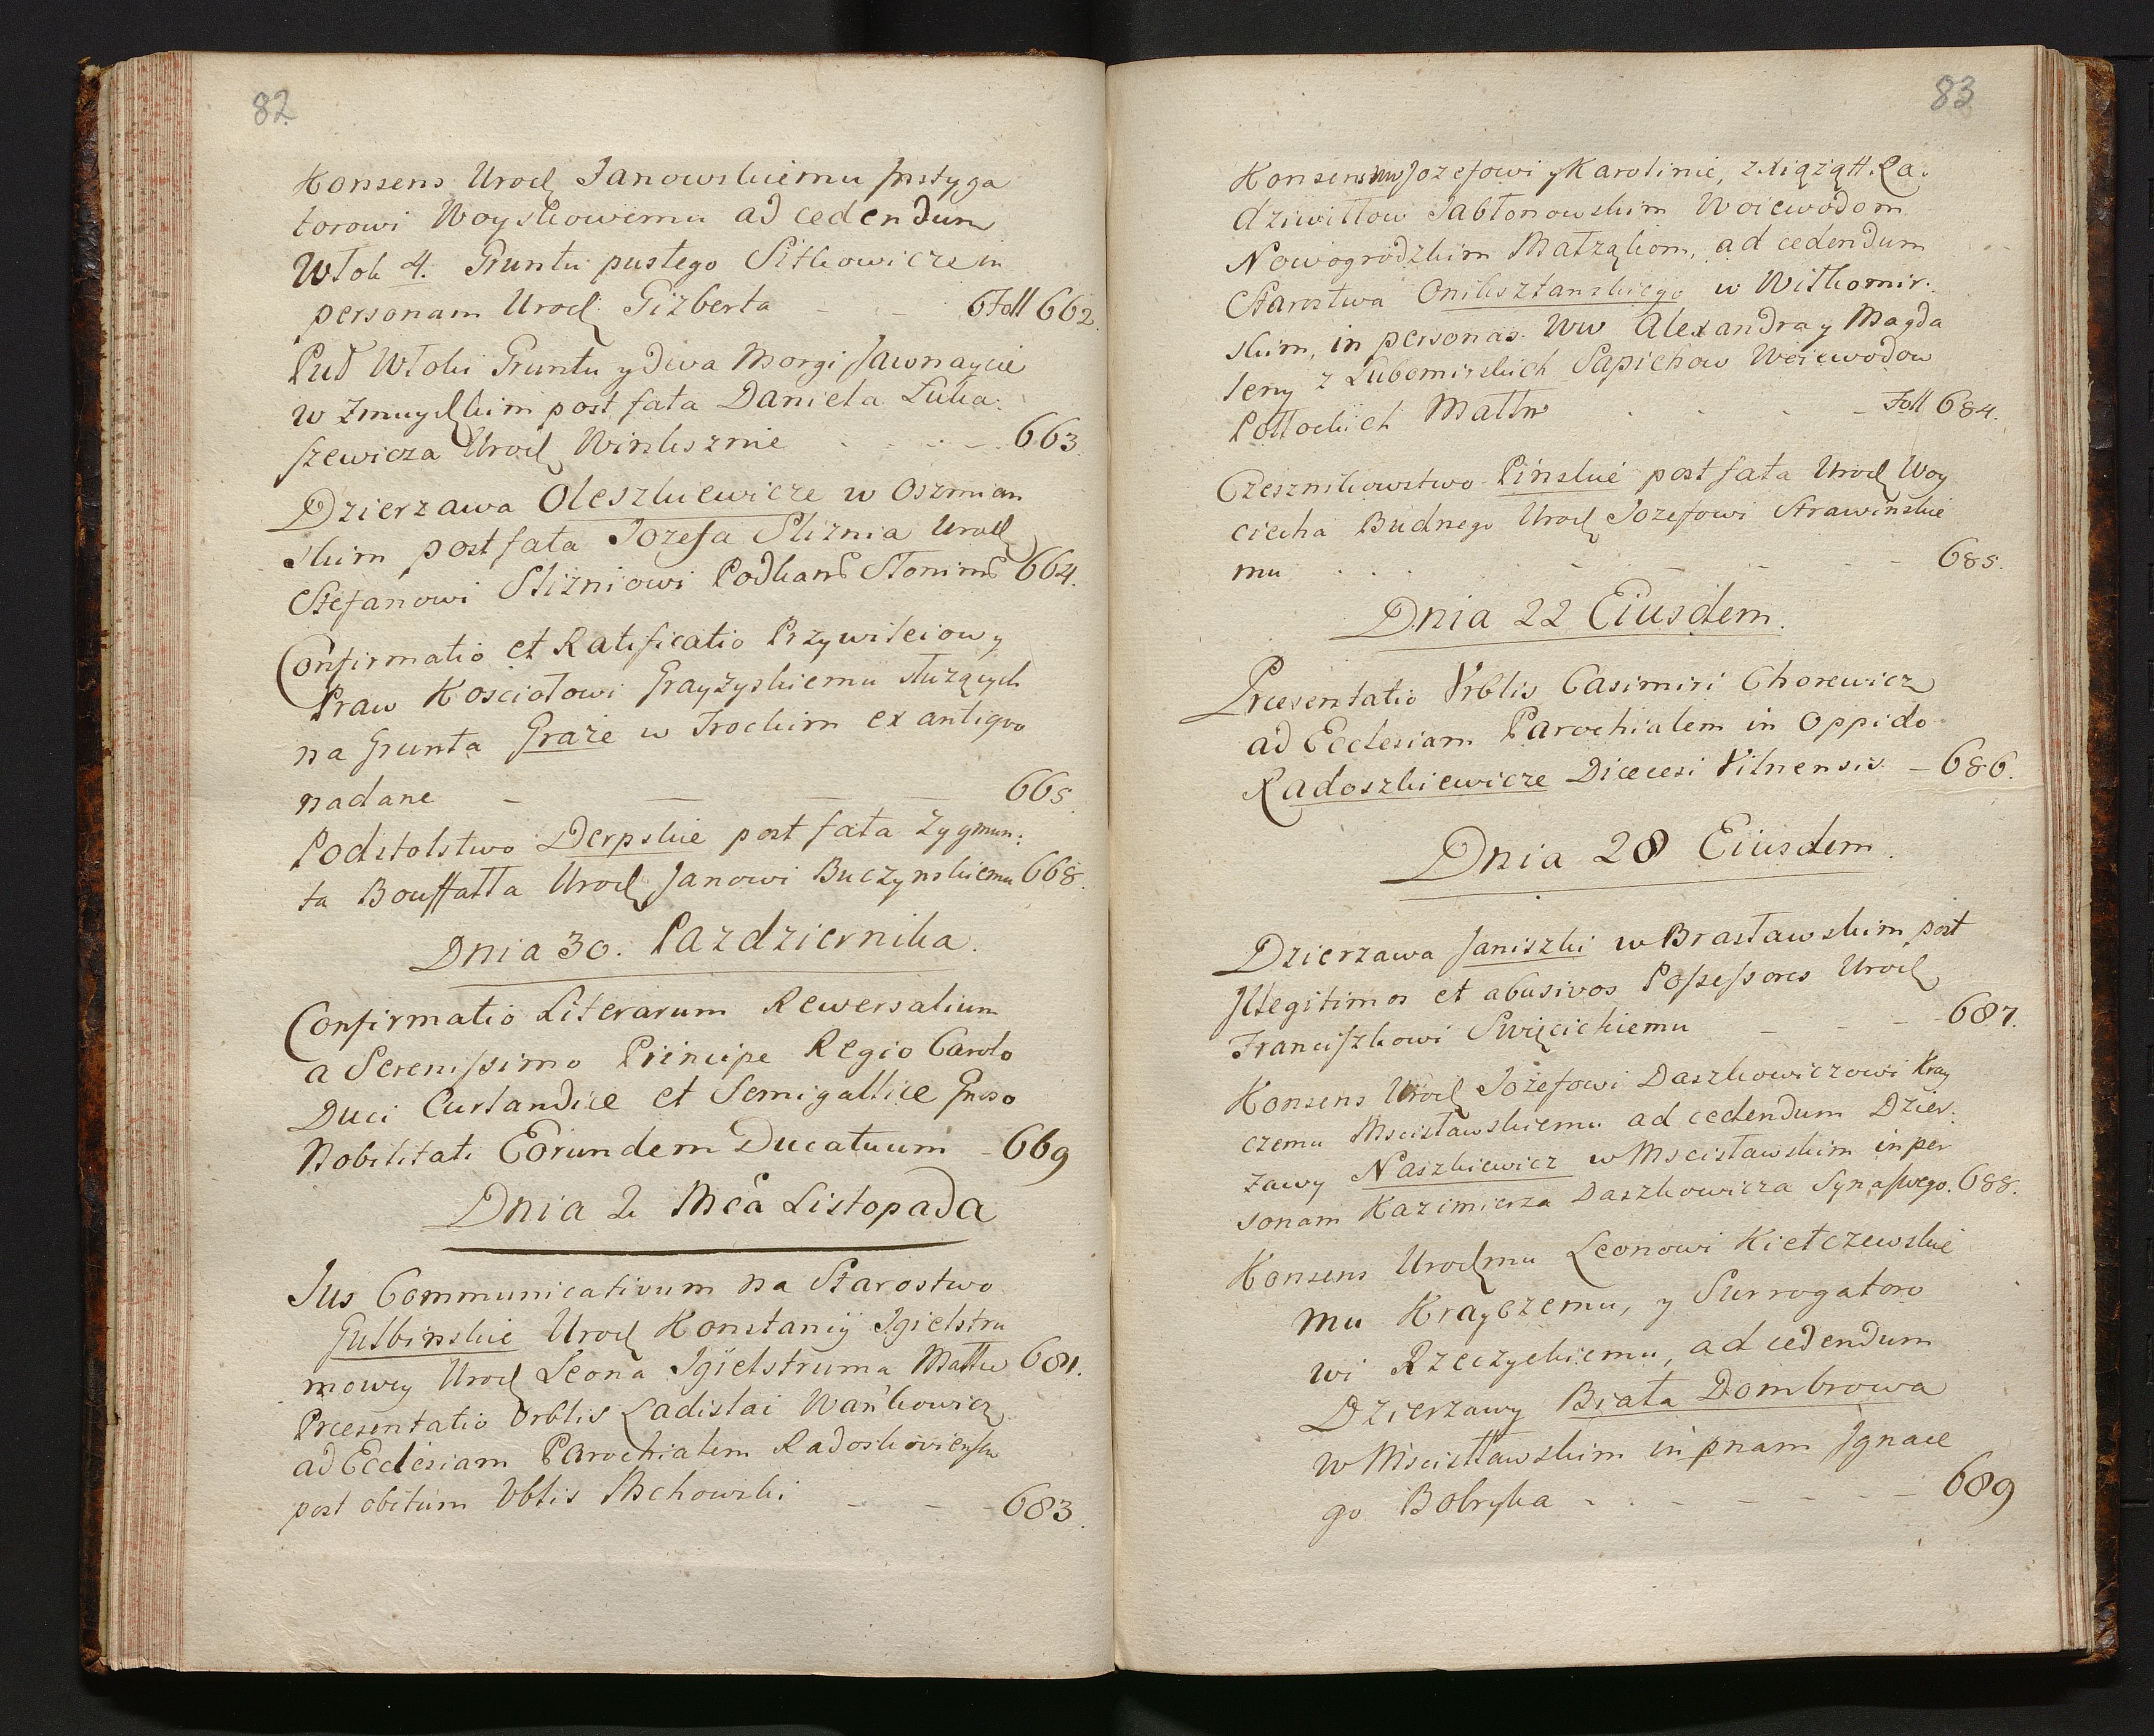 82
Konsens Urod Janowskiemu Instyga
torowi Woyskowemu ad cedendum
Włok 4. Gruntu pustego Sitkowicze in
personam Urod. Gizberta - - Foll 662.
Puł Włoki Gruntu y dwa Morgi Jawnaycie
w Zmuydzkim post fata Daniela Luka:
szewicza Urod Winksznie - - - 663.
Dzierzawa Oleszkiewicze w Oszmian
skim post fata Jozefa Sliznia Urod
Stefanowi Slizniowi Podkans Słonims 664.
Confirmatio et Ratificatio Przywileiow y
Praw Kosciołowi Grayzyskiemu służących
na Grunta Graże w Trockim ex antiquo
nadane - - - 665.
Podstolstwo Derpskie post fata Zygmun:
ta Bouffałła Urod Janowi Buczynskiemu 668.
Dnia 30. Pazdziernika.
Confirmatio Literarum Rewersalium
a Serenissimo Principe Regio Carolo
Duci Curlandiæ et Semigalliæ
Nobilitati Eorundem Ducatuum - 669
Dnia 2 Mca Listopada
Jus Communicativum na Starostwo
Gulbinskie Urod Konstancij Igielstru
mowey Urod Leona Igielstruma Małłw 681.
Præsentatio Vrblis Ladislai Wańkowicz
ad Ecclesiam Parochialem
post obitum Vblis Mchowski - - - 683.
83
Konsens Ww Jozefowi y Karolinie, z Xiążąt Ra:
dziwiłłow Jabłonowskim Woiewodom
Nowogrodzkim Małżąkom, ad cedendum
Starostwa Oniksztanskiego w Wiłkomir:
skim, in personas Ww Alexandra y Magda
leny z Lubomirskich Sapiehow Woiewodow
Połłockich Małłw - - - Foll 684.
Czesznikowstwo Pińskie post fata Urod Woy
ciecha Budnego Urod Jozefowi Strawinskie
mu - - - 685.
Dnia 22 Eiusdem.
Præsentatio Vrblis Casimiri Chorewicz
ad Ecclesiam Parochialem in Oppido
Radoszkiewicze Diæcesi Vilnensis - 686.
Dnia 28 Eiusdem.
Dzierzawa Janiszki w Brasławskim post
Illegitimos et abusivos Possessores Urod
Franciszkowi Swięcickiemu - - - 687.
Konsens Urod Jozefowi Daszkowiczowi Kray
czemu Mscisławskiemu ad cedendum Dzier:
żawy Naszkiewicz w Mscisławskim in per
sonam Kazimierza Daszkowicza Syna swego. 688.
Konsens Urodmu Leonowi Kiełczewskie
mu Krayczemu, y Surrogatoro
wi Rzeczyckiemu, ad cedendum
Dzierzawy Biała Dombrowa
w Mscisławskim in pnam Ignace
go Bobryka - - - 689